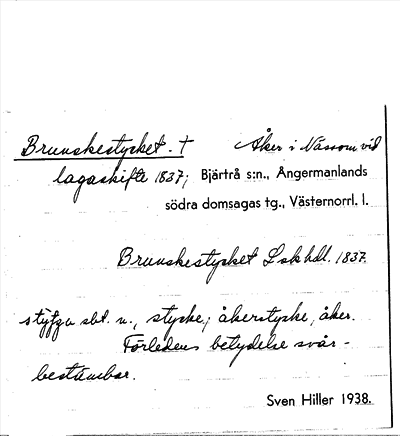 Brunskestycket. † Åker i Nässom vid
lagaskifte 1837; Bjärtrå s:n., Ångermanlands
södra domsagas tg., Västernorrl. l.
Brunskestycket Lskhdl. 1837.
sbt. n., stycke; åkerstycke, åker.
Förledens betydelse svår-
bestämbar.
Sven Hiller 1938.